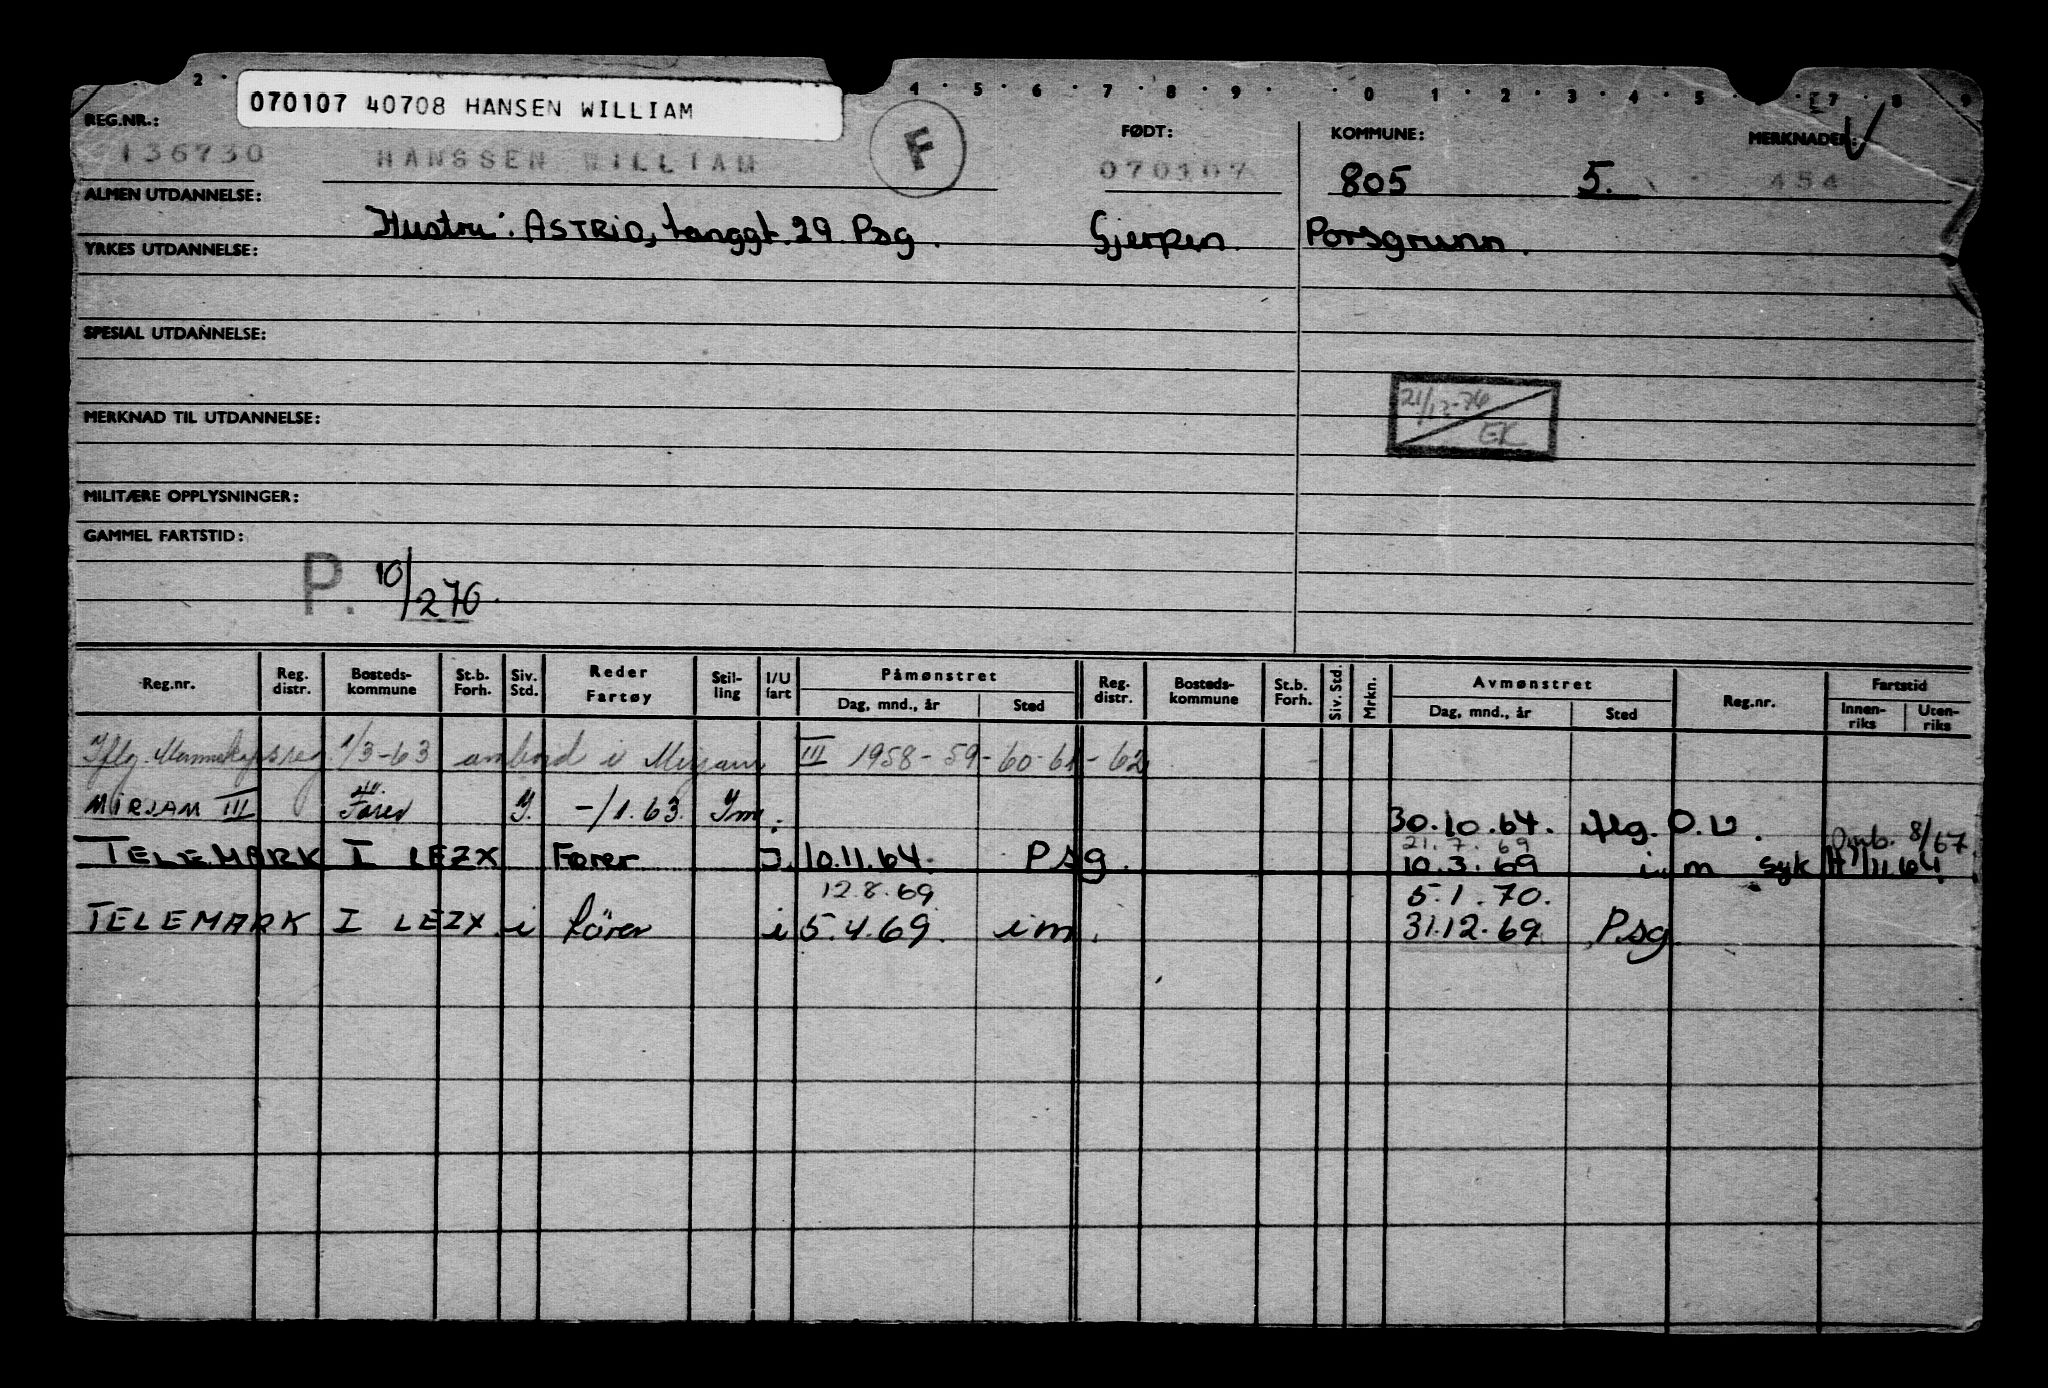 2 · 4 · 5 · 6 · 7 · 8 · 9 · · 0 · 1 · 2 · 3 · 4 · 5 · 7 · 8 9
070107 40708 HANSEN WILLIAM
REG.NR.: FØDT: KOMMUNE: MERKNADER:
136730 HANSSEN WILLIAM F 070107 805 5. 454
ALMEN UTDANNELSE:
Hustru: ASTRID, tanggt. 29. Psg. Gjerpen. Porsgrunn.
YRKES UTDANNELSE:
SPESIAL UTDANNELSE:
21/12-76
EK
MERKNAD TIL UTDANNELSE:
MILITÆRE OPPLYSNINGER:
GAMMEL FARTSTID:
P. 10/270.
Reg.nr. Reg. distr. Bosteds-kommune St.b. Forh. Siv. Std. Reder Fartøy Stil-ling I/U fart Påmønstret Dag, mnd., år Sted Reg. distr. Bosteds-kommune St.b. Forh. Siv. Std. Mrkn. Avmønstret Dag, mnd., år Sted Reg.nr. Fartstid Innen-riks Uten-riks
Iflg. Mannskapsreg 1/3-63 ombord i Mirjam III 1958-59-60-61-62
MIRJAM III Fører J. -/1.63. Im. 30.10.64. iflg. O.U.
Omb. 8/67
21.7.69
TELEMARK I LEZX Fører J. 10.11.64. Psg. 10.3.69 i m syk 11/11.64.
12.8.69 5.1.70.
TELEMARK I LEZX i fører i 5.4.69. i m. 31.12.69 Psg.